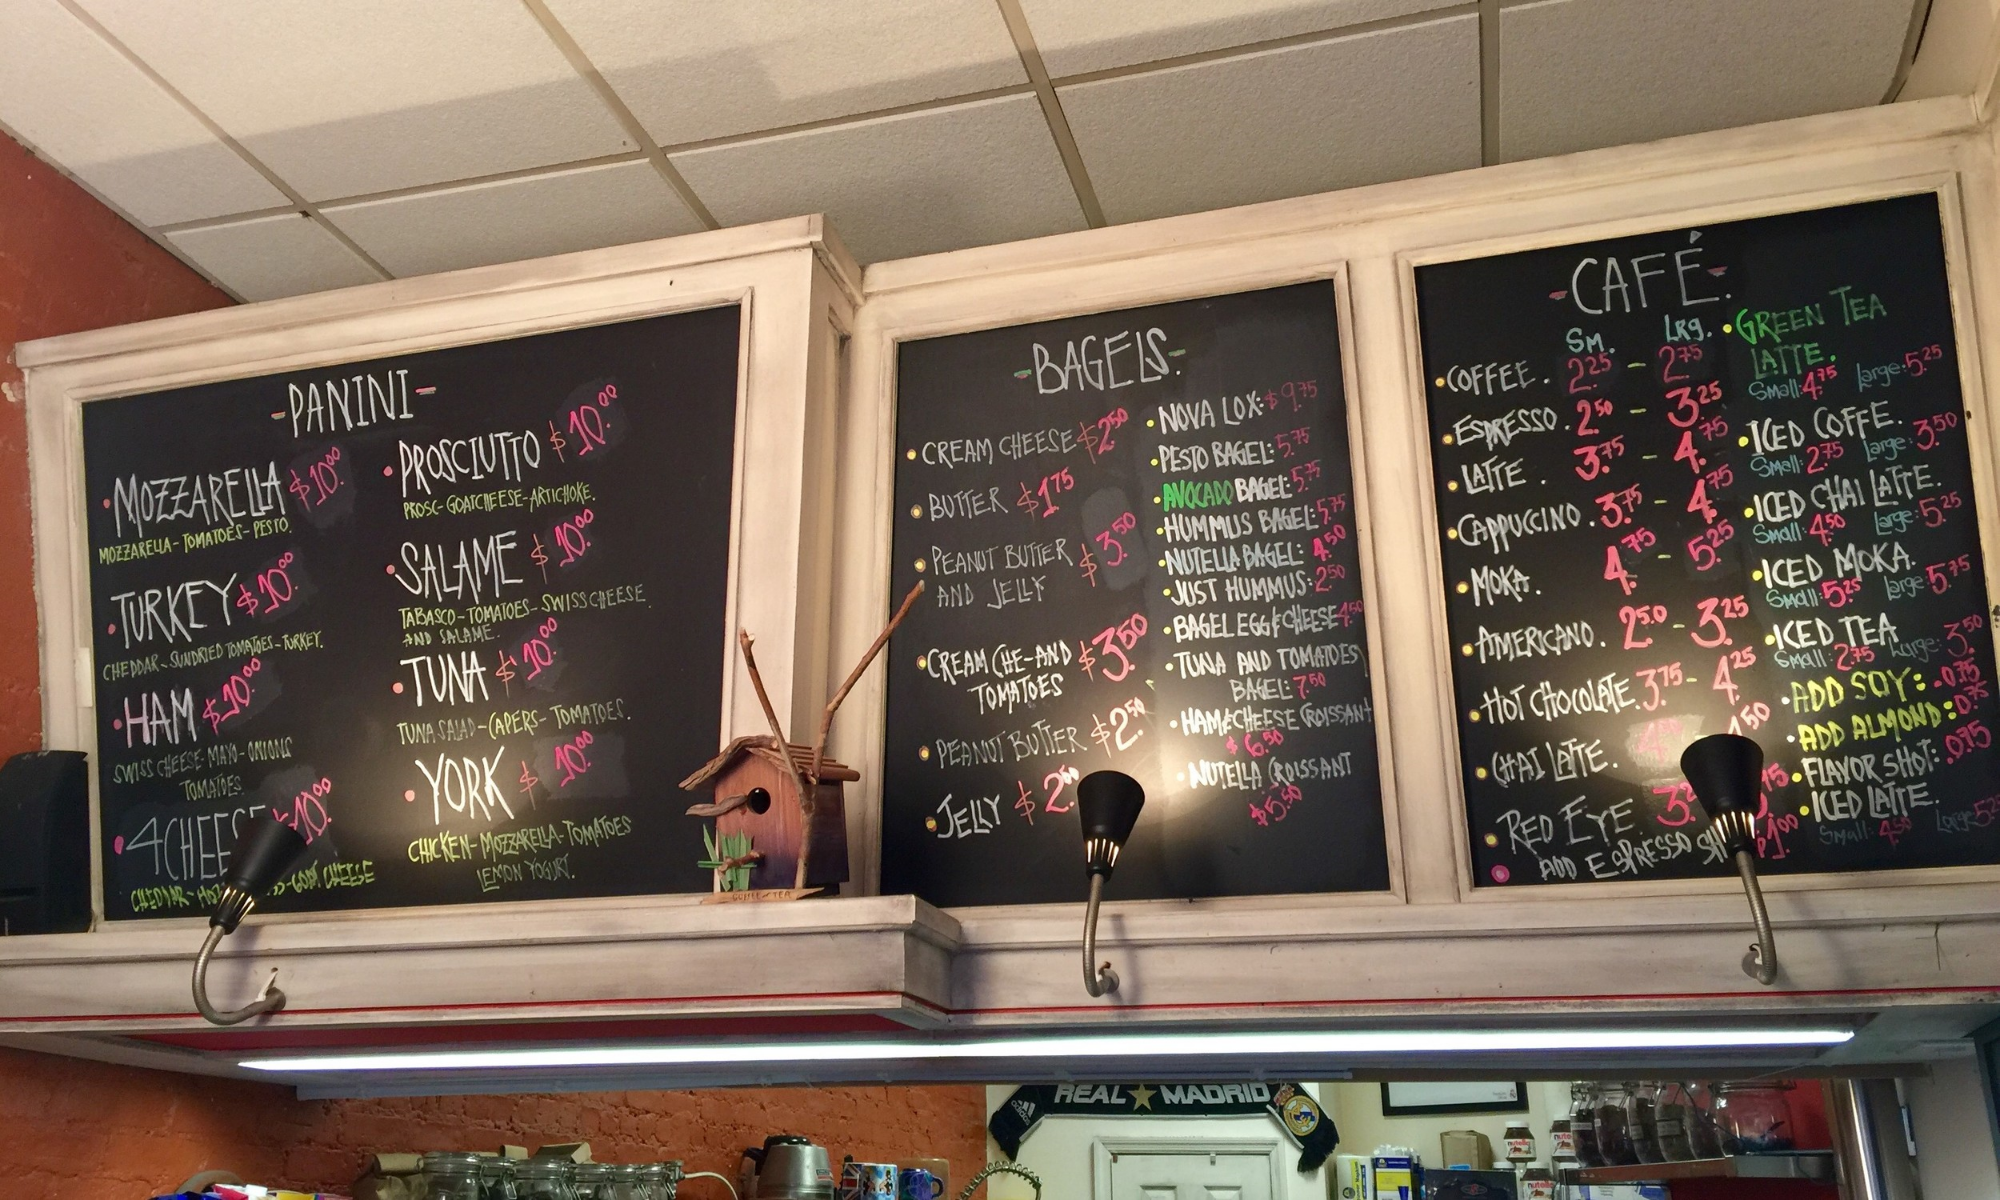 -PANINI-
• MOZZARELLA $10.00
MOZZARELLA-TOMATOES-PESTO.
• TURKEY $10.00
CHEDDAR-SUNDRIED TOMATOES-TURKEY.
• HAM $10.00
SWISS CHEESE-MAYO-ONIONS
TOMATOES.
• 4CHEE $10.00
CHEDDAR- -GOAT CHEESE
• PROSCIUTTO $10.00
PROSC-GOATCHEESE-ARTICHOKE.
• SALAME $10.00
TABASCO-TOMATOES-SWISSCHEESE.
AND SALAME.
• TUNA $10.00
TUNA SALAD-CAPERS-TOMATOES.
• YORK $10.00
CHICKEN-MOZZARELLA-TOMATOES
LEMON YOGURT.
-BAGELS-
• CREAM CHEESE $2.50
• BUTTER $1.75
• PEANUT BUTTER $3.50
AND JELLY
• CREAM CHE-AND $3.50
TOMATOES
• PEANUT BUTTER $2.50
• JELLY $2.00
• NOVA LOX: $9.75
• PESTO BAGEL: 5.75
• AVOCADO BAGEL: 5.75
• HUMMUS BAGEL: 5.75
• NUTELLA BAGEL: 4.50
• JUST HUMMUS: 2.50
• BAGEL EGG & CHEESE 4.50
• TUNA AND TOMATOES
BAGEL: 7.50
• HAM&CHEESE CROISSANT
$6.50
• NUTELLA CROISSANT
$5.50
-CAFÉ-
SM. LRG.
• COFFEE. 2.25 - 2.75
• ESPRESSO. 2.50 - 3.25
• LATTE . 3.75 - 4.75
• CAPPUCCINO. 3.75 - 4.75
• MOKA. 4.75 - 5.25
• AMERICANO. 2.50 - 3.25
• HOT CHOCOLATE. 3.75 - 4.25
• CHAI LATTE. 4.50
• RED EYE
• ADD ESPRESSO SH $1.00
• GREEN TEA
LATTE.
Small: 4.75 large: 5.25
• ICED COFFE.
Small: 2.75 large: 3.50
• ICED CHAI LATTE.
Small: 4.50 Large: 5.25
• ICED MOKA.
Small: 5.25 large: 5.75
• ICED TEA
Small: 2.75 Large: 3.50
• ADD SOY: 0.75
• ADD ALMOND: 0.75
• FLAVOR SHOT: 0.75
• ICED LATTE.
Small: 4.50 Large 5.25
adidas REAL MADRID
nutella
nutella
nutella